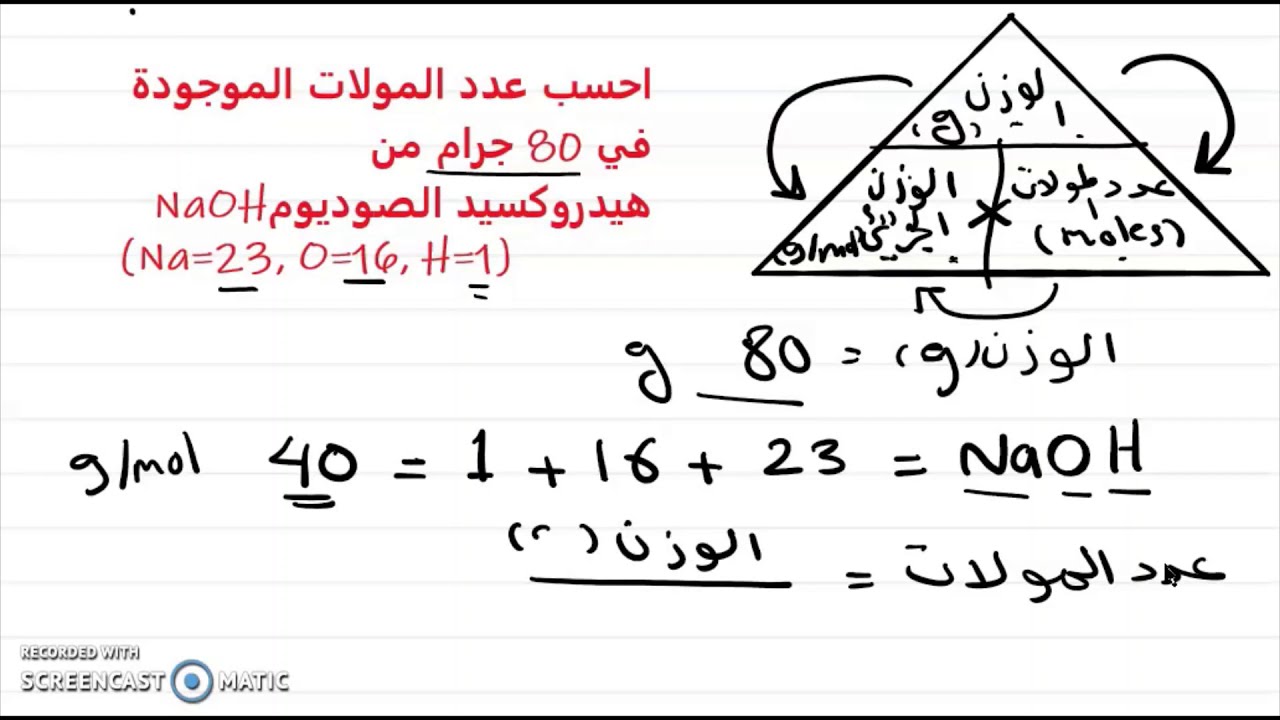 احسب عدد المولات الموجودة
في 80 جرام من
هيدروكسيد الصوديومNaOH
(Na=23, O=16, H=1)
الوزن
(g)
عدد المولات
(moles)
الوزن
الجزيئي
(g/mol)
الوزن(g) = 80 g
NaOH = 23 + 16 + 1 = 40 g/mol
عدد المولات = الوزن
RECORDED WITH
SCREENCAST MATIC